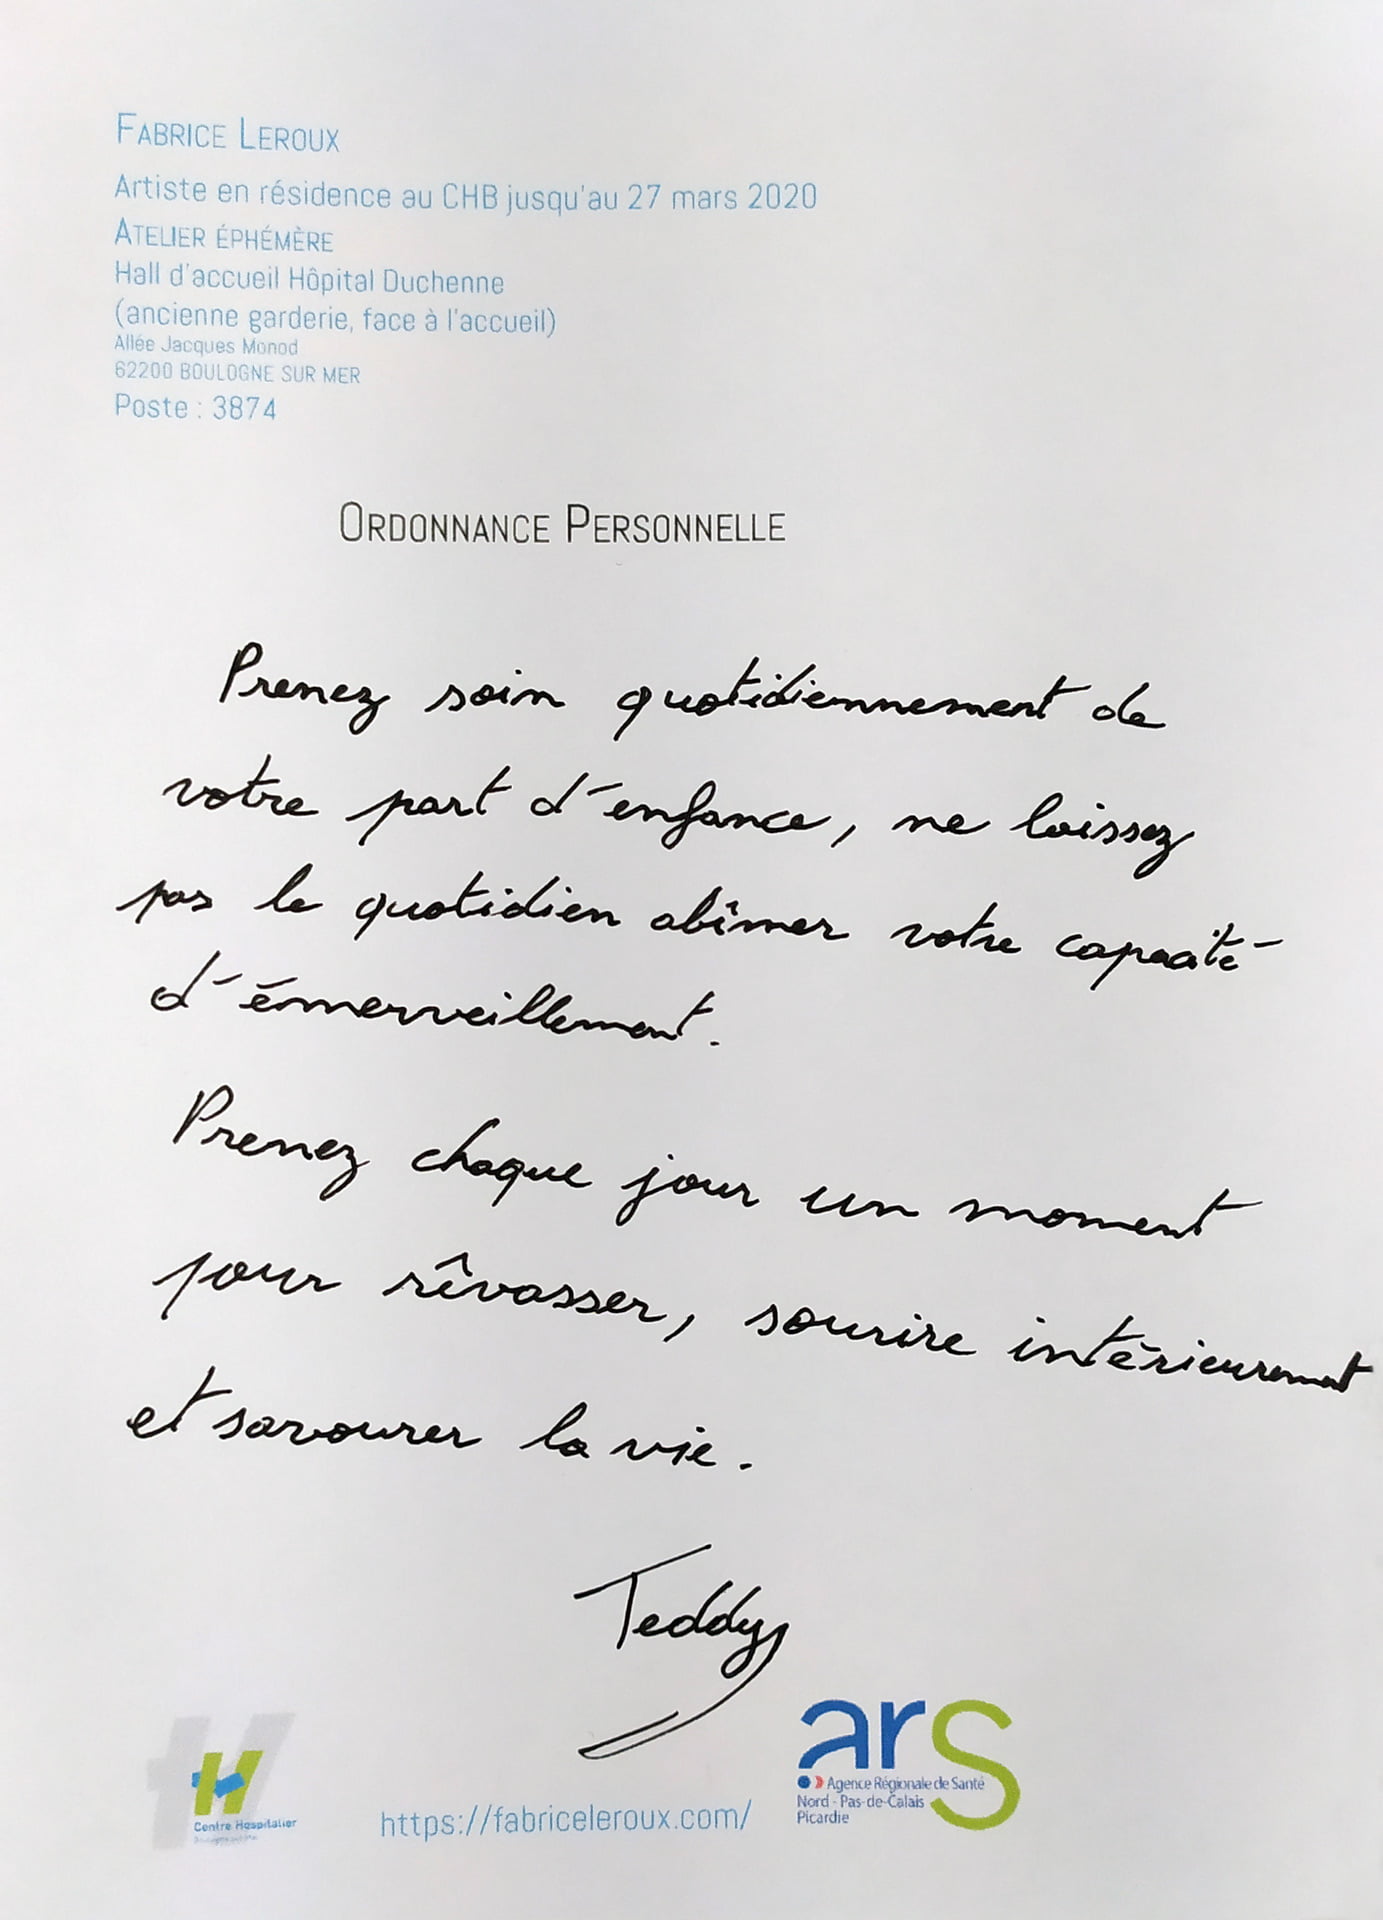 FABRICE LEROUX
Artiste en résidence au CHB jusqu'au 27 mars 2020
ATELIER ÉPHÉMÈRE
Hall d'accueil Hôpital Duchenne
(ancienne garderie, face à l'accueil)
Allée Jacques Monod
62200 BOULOGNE SUR MER
Poste : 3874
ORDONNANCE PERSONNELLE
Prenez soin quotidiennement de
votre part d'enfance, ne laissez
pas le quotidien abîmer votre capacité
d'émerveillement.
Prenez chaque jour un moment
pour rêvasser, sourire intérieurement
et savourer la vie.
Teddy
H
Centre Hospitalier
https://fabriceleroux.com/
ars
Agence Régionale de Santé
Nord - Pas-de-Calais
Picardie